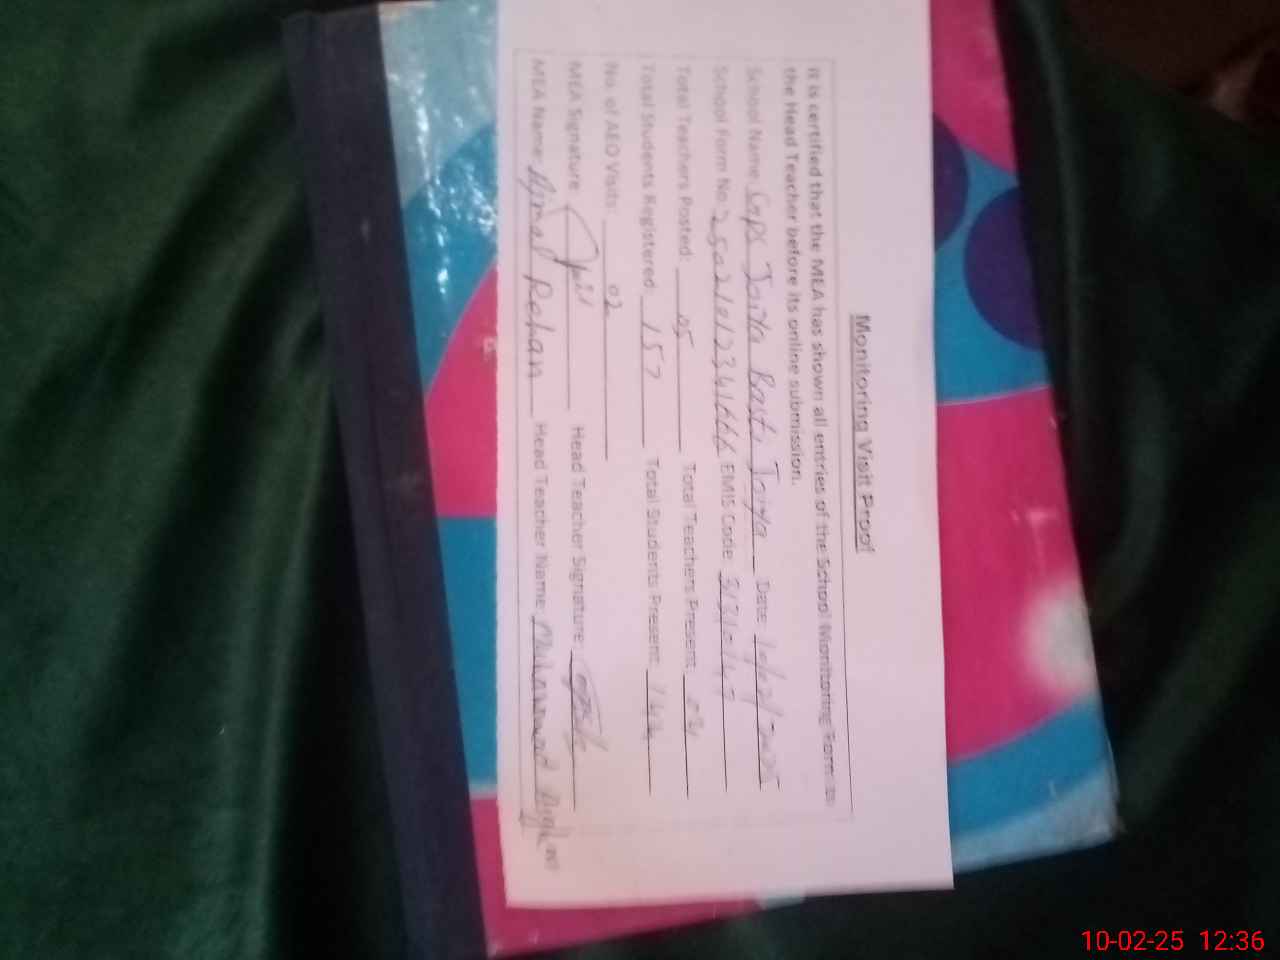 Monitoring Visit Proof
It is certified that the MEA has shown all entries of the School Monitoring Form to
the Head Teacher before its online submission.
School Name: GPS Joiya Basti Joiya Date: 10/02/2025
School Form No: EMIS Code:
Total Teachers Posted: 05 Total Teachers Present: 04
Total Students Registered: 157 Total Students Present:
No. of AEO Visits: 02
MEA Signature: Head Teacher Signature:
MEA Name: Ajmal Rehan Head Teacher Name: Muhammad
10-02-25 12:36